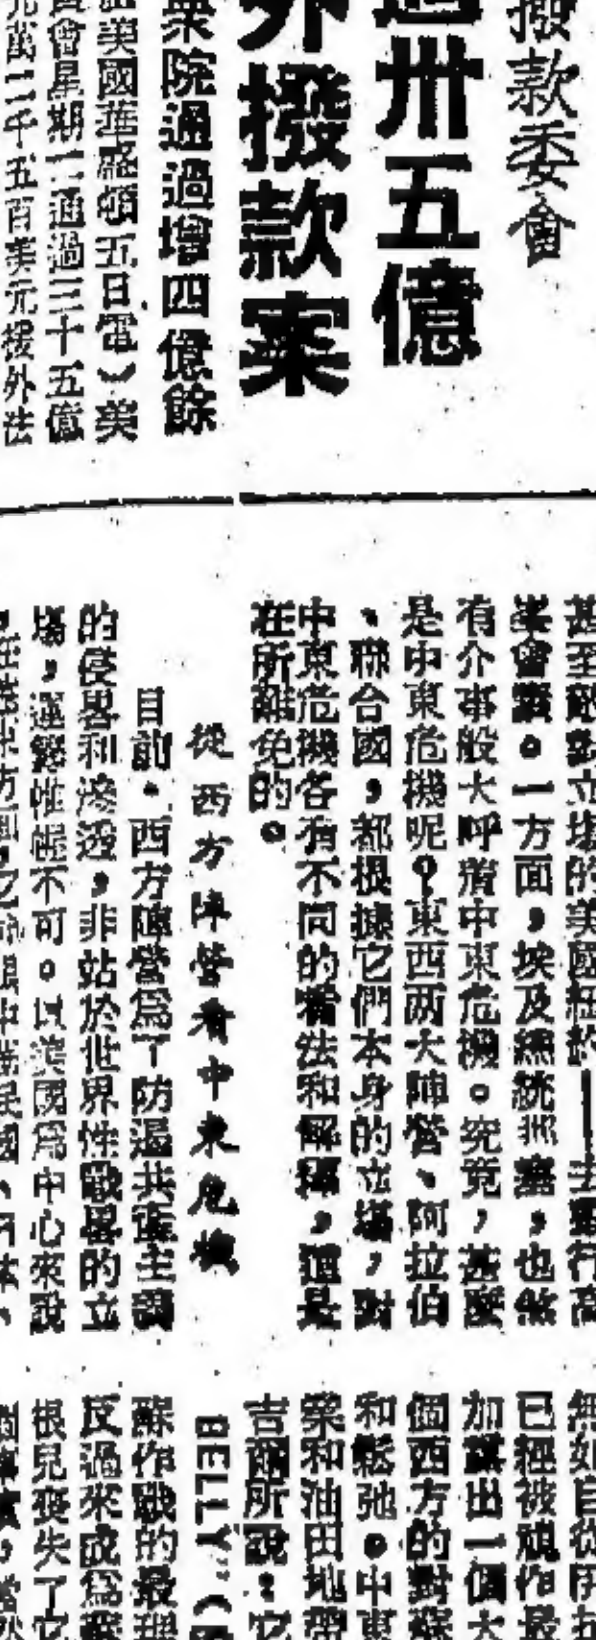 撥款委會
過卅五億
外撥款案
衆院通過增四億餘
美國華盛頓五日電）美
會星期二通過三十五億
萬二千五百美元援外法
甚至敵對立場的美國紐約——去舉行高
峯會議。一方面，埃及總統那塞，也煞
有介事般大呼着中東危機。究竟，甚麼
是中東危機呢？東西两大陣營、阿拉伯
、聯合國，都根據它們本身的立場，對
中東危機各有不同的看法和解釋，這是
在所難免的。
從西方陣營看中東危機
目前，西方陣營爲了防遏共產主義
的侵畧和滲透，非站於世界性戰畧的立
場，運籌帷幄不可。以美國爲中心來說
無如自從伊拉
已經被視作最
加騐出一個大
個西方的對蘇
和鬆弛。中東
業和油田地帶
吉爾所說：它
BELLY”（
蘇作戰的最理
反過來成爲蘇
根兒喪失了它